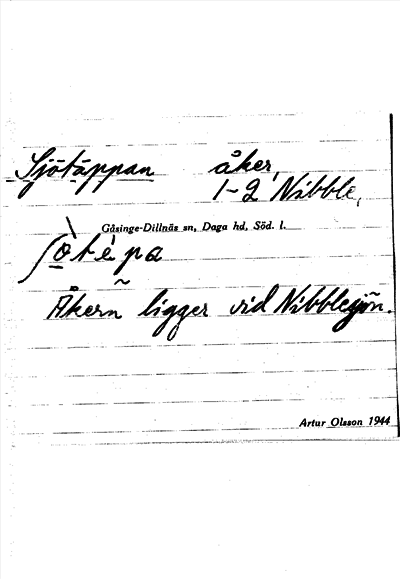 Sjötäppan åker,
1-2 Nibble,
Gåsinge-Dillnäs sn, Daga hd, Söd. l.
ʃò̱tèpa
Åkern ligger vid Nibblesjön.
Artur Olsson 1944